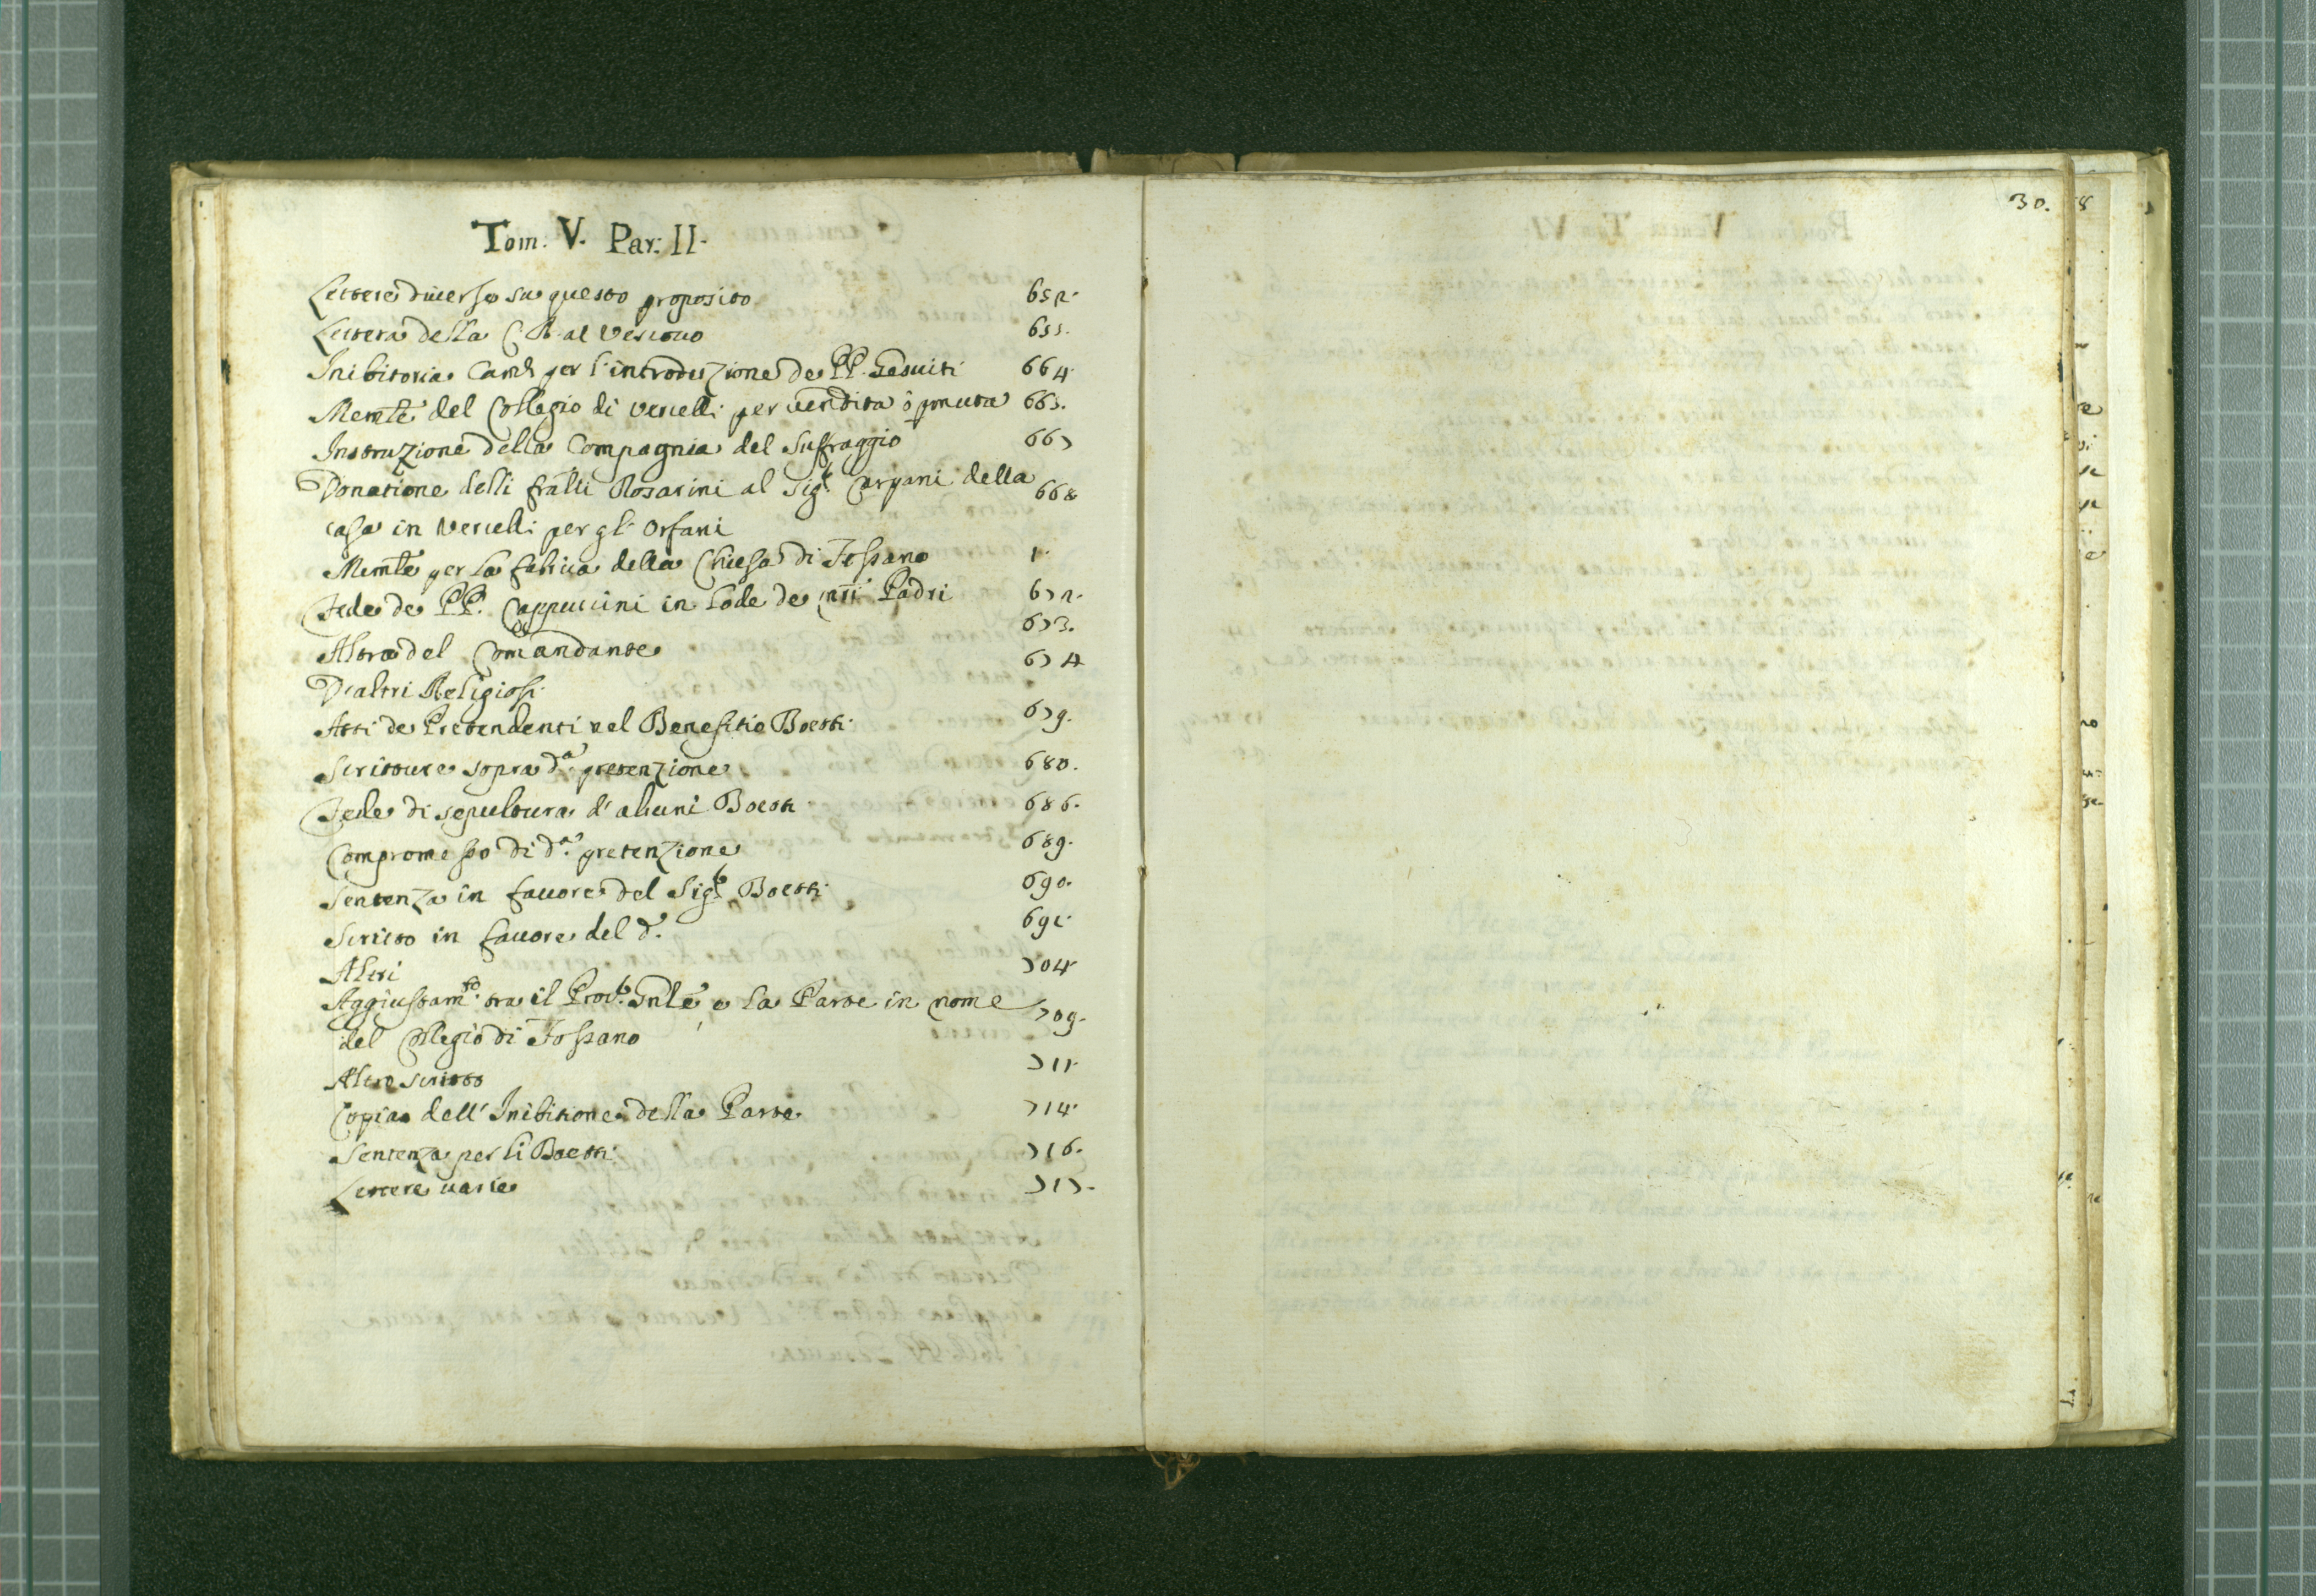 Tom. V. Par: II.
Lettere diuerse su questo proposito 652.
Lettera della C. R. al Vescouo 655.
Inibitoria Cam.le per l'introduzione de PP. Gesuiti 664.
Memle del Collegio di Vercelli per vendita ò pmuta 665.
Instruzione della Compagnia del Suffraggio 667
Donatione delli fratlli Rosarini al Sig.r Cargani della 668
casa in Vercelli per gl' Orfani
Memle per la fabrica della Chiesa di Fossano 1.
Fede de PP. Cappuccini in lode de nri Padri 672.
Altra del Comandante 673.
D'altri Religiosi 674
Atti de Pretendenti nel Benefitio Boetti 679.
Scritture sopra d.a pretenzione 680.
Fede di sepultura d'alcuni Boetti 686.
Compromesso di d.a pretenzione 689.
Sentenza in fauore del Sig.r Boetti 690.
Scritto in fauore del d.o 691.
Altri 704.
Aggiustam.to tra il Proc.r Gnle e la Parte in nome 709.
del Collegio di Fossano
Altro scritto 711.
Copia dell' Inibitione della Parte 714.
Sentenza per li Boetti 716.
Lettere uarie 717.
30.
8